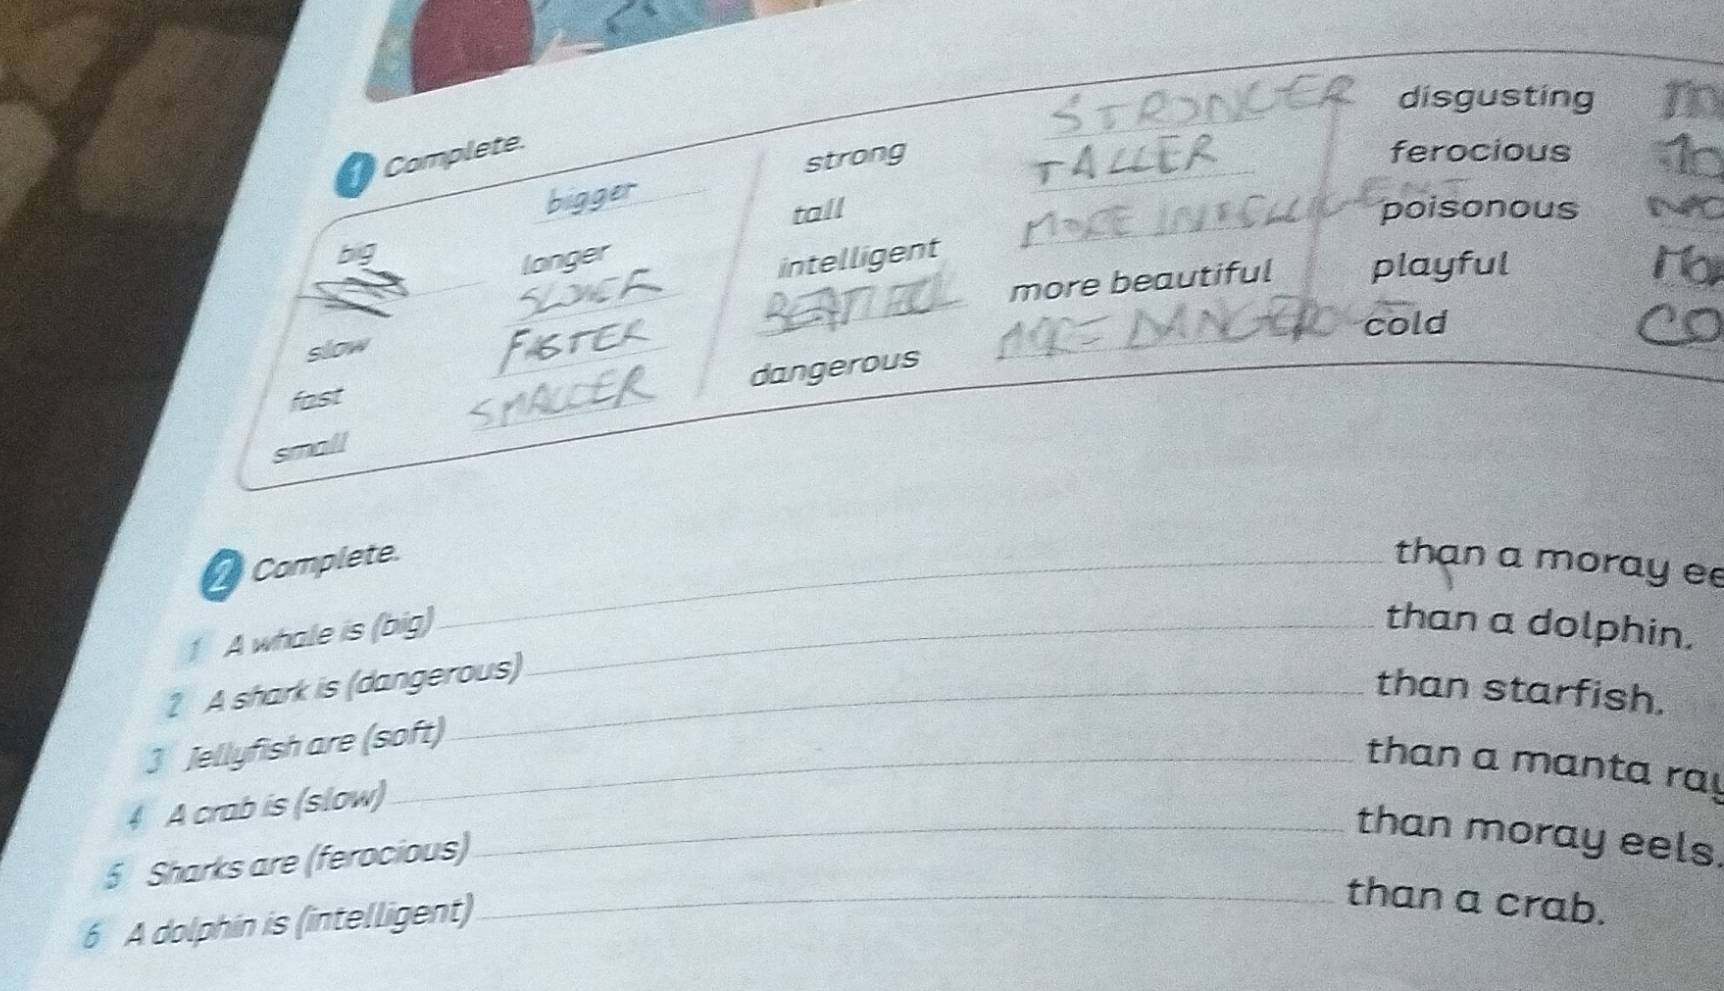 1 Complete.
big bigger strong STRONGER disgusting
longer tall TALLER ferocious
slow SLOWER intelligent MORE INTELLIGENT poisonous
fast FASTER BEATIFUL more beautiful playful
small SMALLER dangerous MORE DANGEROUS cold CO
2 Complete.
1 A whale is (big) than a moray ee
2 A shark is (dangerous) than a dolphin.
3 Jellyfish are (soft) than starfish.
4 A crab is (slow) than a manta ray
5 Sharks are (ferocious) than moray eels.
6 A dolphin is (intelligent) than a crab.